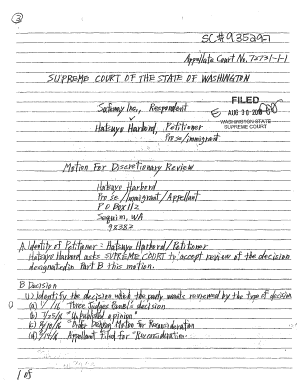 ③
SC# 93529-7
Appellate Court No. 72731-1-1
SUPREME COURT OF THE STATE OF WASHINGTON
Safeway Inc., Respondent
v
Hatsuyo Harbord, Petitioner
Pro se/immigrant
FILED
E AUG 30
WASHINGTON STATE
SUPREME COURT
Motion For Discretionary Review
Hatsuyo Harbord
Pro Se/Immigrant/Appellant
P O Box 112
Sequim, WA
98382
A. Identity of Petitioner : Hatsuyo Harbord/Petitioner
Hatsuyo Harbord asks SUPREME COURT to accept review of the decision
designated in Part B this motion.
B Decision
(1) Identify the decision which the party wants reviewed by the type of decision
(a) /16 Three Judges Panel's decision
(b) 7/25/16 "Unpublished opinion"
(c) 8/10/16 "Order Denying Motion for Reconsideration
(d) /16 Appellant Filed for "Reconsideration.
1 of